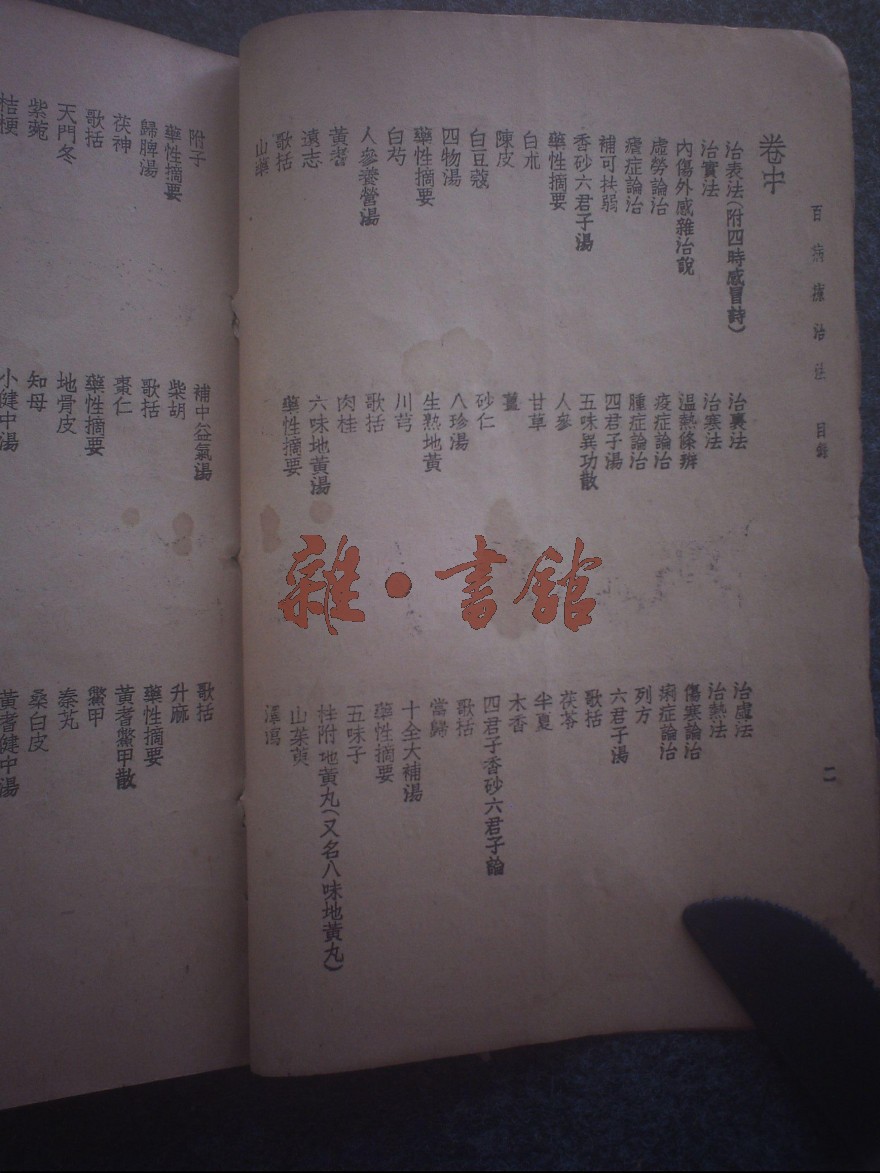 百病療治法 目錄 二
卷中
治表法(附四時感冒詩) 治裏法 治虛法
治實法 治寒法 治熱法
內傷外感雜治說 溫熱條辨 傷寒論治
虛勞論治 疫症論治 痢症論治
瘧症論治 腫症論治 列方
補可扶弱 四君子湯 六君子湯
香砂六君子湯 五味異功散 歌括
藥性摘要 人參 茯苓
白朮 甘草 半夏
陳皮 薑 木香
白豆蔻 砂仁 四君子香砂六君子論
四物湯 八珍湯 歌括
藥性摘要 生熟地黃 當歸
白芍 川芎 十全大補湯
人參養營湯 歌括 藥性摘要
黃耆 肉桂 五味子
遠志 六味地黃湯 桂附地黃丸(又名八味地黃丸)
歌括 藥性摘要 山茱萸
山藥 澤瀉
附子 補中益氣湯 歌括
藥性摘要 柴胡 升麻
歸脾湯 歌括 藥性摘要
茯神 棗仁 黃耆鱉甲散
歌括 藥性摘要 鱉甲
天門冬 地骨皮 秦艽
紫菀 知母 桑白皮
桔梗 小健中湯 黃耆健中湯
雜·書館